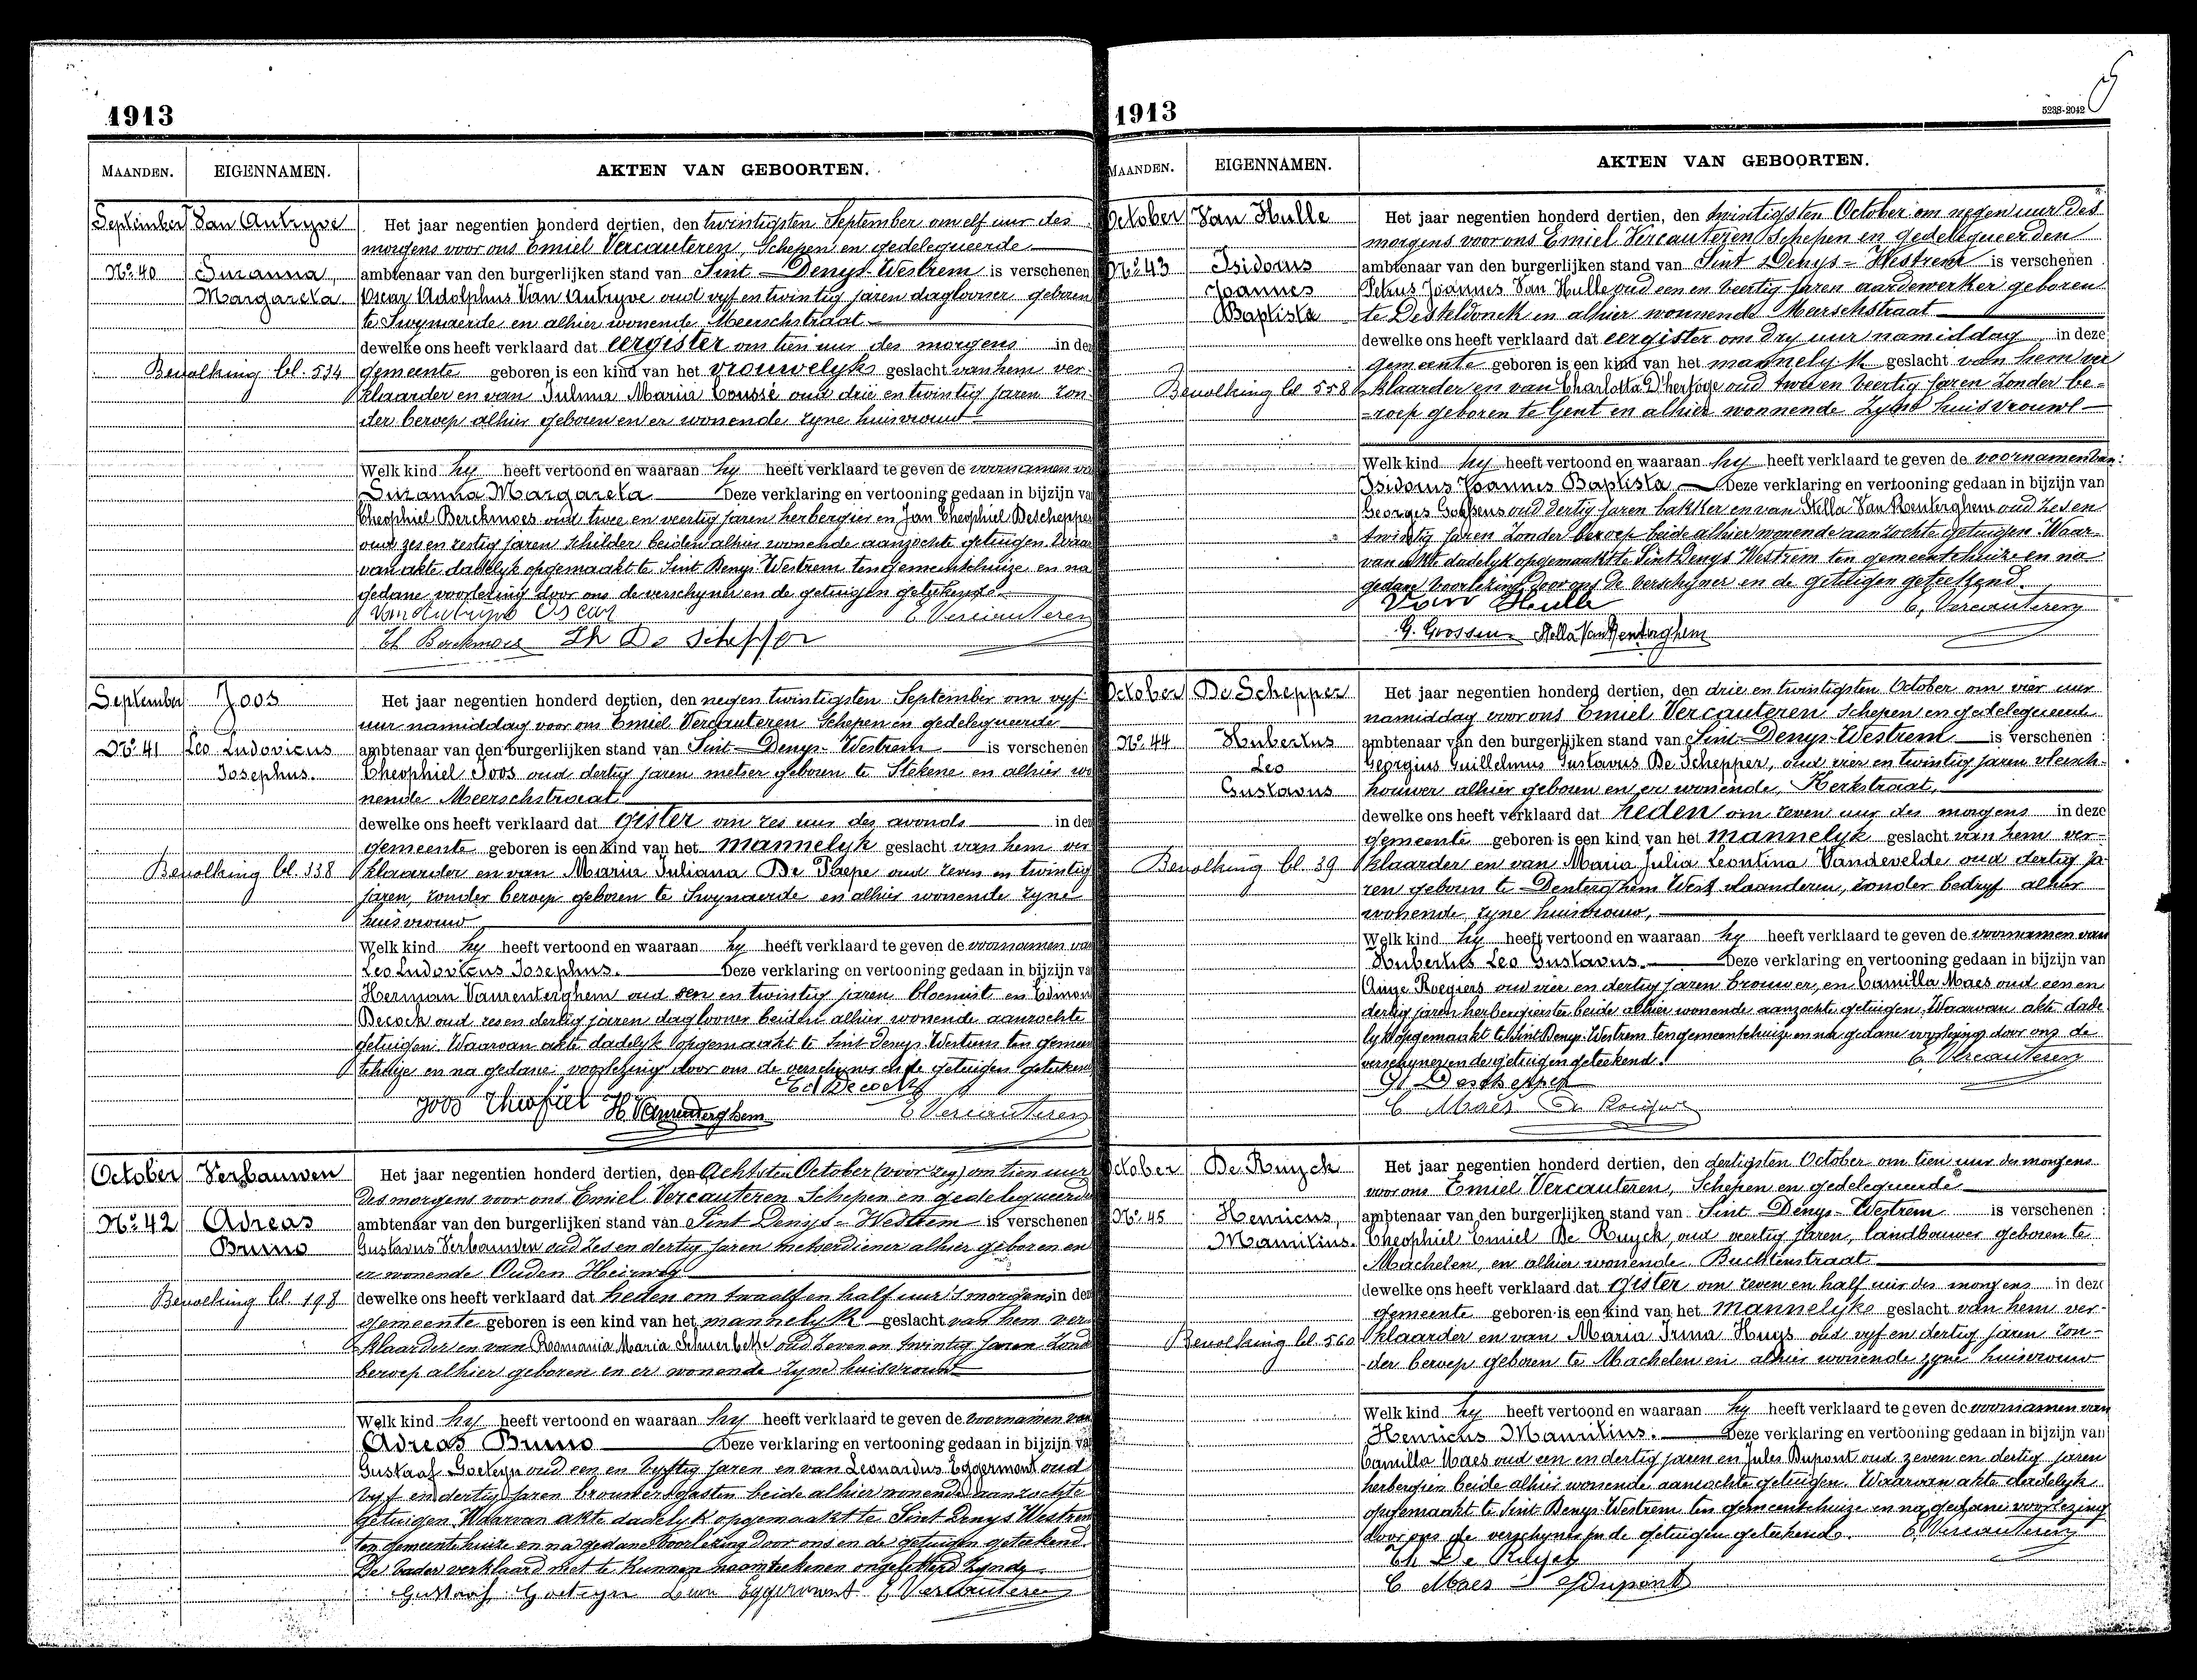 1913
MAANDEN. EIGENNAMEN. AKTEN VAN GEBOORTEN.
September Van Autryve
Het jaar negentien honderd dertien, den twintigsten September om elf uur des
morgens voor ons Emiel Vercauteren, Schepen en gedelegueerde
No. 40 Suzanna, ambtenaar van den burgerlijken stand van Sint-Denys-Westrem is verschenen
Margareta. Oscar Adolphus Van Autryve oud vyf en twintig jaren daglooner geboren
te Swynaerde en alhier wonende Meerschstraat
dewelke ons heeft verklaard dat eergister om tien uur des morgens in de
Bevolking bl. 534 gemeente geboren is een kind van het vrouwelyk geslacht van hem ver-
klaarder en van Julma Maria Coussé oud drie en twintig jaren zon-
der beroep alhier geboren en er wonende zyne huisvrouw
Welk kind hy heeft vertoond en waaraan hy heeft verklaard te geven de voornamen van
Suzanna Margareta Deze verklaring en vertooning gedaan in bijzijn va
Theophiel Berckmoes oud twee en veertig jaren herbergier en Jan Theophiel Descheppe
oud zes en zestig jaren schilder beiden alhier wonende aanzochte getuigen. Waar
van akte dadelyk opgemaakt te Sint Denys Westrem ten gemeentehuize en na
gedane voorlezing door ons de verschyner en de getuigen geteekend.
Van Autryve Oscar E Vercauteren
Th Berckmoes Th De Schepper
September Joos
Het jaar negentien honderd dertien, den negen twintigsten September om vyf
uur namiddag voor ons Emiel Vercauteren Schepen en gedelegueerde
No. 41 Leo Ludovicus ambtenaar van den burgerlijken stand van Sint-Denys-Westrem is verschenen
Josephus. Theophiel Joos oud dertig jaren metser geboren te Stekene en alhier wo
nende Meerschstraat
dewelke ons heeft verklaard dat gister om zes uur des avonds in de
gemeente geboren is een kind van het mannelyk geslacht van hem ver
Bevolking bl. 338 klaarder en van Maria Juliana De Paepe oud zeven en twintig
jaren, zonder beroep geboren te Swynaerde en alhier wonende zyne
huisvrouw
Welk kind hy heeft vertoond en waaraan hy heeft verklaard te geven de voornamen van
Leo Ludovicus Josephus. Deze verklaring en vertooning gedaan in bijzijn va
Herman Vanrenterghem oud een en twintig jaren bloemist en Edmon
Decock oud zes en dertig jaren daglooner beiden alhier wonende aanzochte
getuigen. Waarvan akte dadelyk opgemaakt te Sint Denys Westrem ten gemeen
tehuize en na gedane voorlezing door ons de verschyner en de getuigen geteekend
Ed Decock
Joos Theofiel H. Vanrenterghem E Vercauteren
October Verbauwen
Het jaar negentien honderd dertien, den Achtsten October (voor zeg) om tien uur
des morgens voor ons Emiel Vercauteren Schepen en gedelegueerde
No. 42 Adreas ambtenaar van den burgerlijken stand van Sint Denijs-Westrem is verschenen
Bruno Gustavus Verbauwen oud zes en dertig jaren metserdiener alhier geboren en
er wonende Ouden Heirweg
Bevolking bl. 198 dewelke ons heeft verklaard dat heden om twaalf en half uur 's morgens in de
gemeente geboren is een kind van het mannelyk geslacht van hem ver
klaarder en van Romania Maria Schuerbeke oud zeven en twintig jaren zond
beroep alhier geboren en er wonende zyne huisvrouw
Welk kind hy heeft vertoond en waaraan hy heeft verklaard te geven de voornamen van
Adreas Bruno Deze verklaring en vertooning gedaan in bijzijn va
Gustaaf Goeteyn oud een en vyftig jaren en van Leonardus Eggermont oud
vyf en dertig jaren brouwersgasten beide alhier wonende aanzochte
getuigen Waarvan akte dadelyk opgemaakt te Sint Denys Westrem
ten gemeentehuize en na gedane voorlezing door ons en de getuigen geteekend.
De vader verklaard niet te kunnen naamteekenen ongeletterd zynde.
Gustaaf Goeteyn Leon Eggermont E Vercauteren
1913
5238-2042
MAANDEN. EIGENNAMEN. AKTEN VAN GEBOORTEN.
October Van Hulle
Het jaar negentien honderd dertien, den twintigsten October om negen uur des
morgens voor ons Emiel Vercauteren Schepen en gedelegueerden
No. 43 Isidorus ambtenaar van den burgerlijken stand van Sint Denys-Westrem is verschenen
Joannes Petrus Joannes Van Hulle oud een en veertig jaren aardewerker geboren
Baptista te Desteldonck en alhier wonnende Meerschstraat
dewelke ons heeft verklaard dat eergister om dry uur namiddag in deze
gemeente geboren is een kind van het mannelyk geslacht van hem ver
Bevolking bl 558 klaarder en van Charlotta D'hertoge oud twee en veertig jaren zonder be-
-roep geboren te Gent en alhier wonnende Zyne huisvrouw
Welk kind hy heeft vertoond en waaraan hy heeft verklaard te geven de voornamen van:
Isidorus Joannes Baptista Deze verklaring en vertooning gedaan in bijzijn van
Georges Goossens oud dertig jaren bakker en van Stella Van Renterghem oud zes en
twintig jaren zonder beroep beide alhier wonende aanzochte getuigen. Waar-
van akte dadelyk opgemaakt te Sint Denys Westrem ten gemeentehuize en na
gedane voorlezing door ons De verschyner en de getuigen geteekend.
Van Hulle E. Vercauteren
G. Goossens Stella Van Renterghem
October De Schepper
Het jaar negentien honderd dertien, den drie en twintigsten October om vier uur
namiddag voor ons Emiel Vercauteren Schepen en gedelegueerde
No. 44 Hubertus ambtenaar van den burgerlijken stand van Sint-Denys-Westrem is verschenen:
Leo Georgius Guillelmus Gustavus De Schepper, oud vier en twintig jaren vleesch-
Gustavus houwer alhier geboren en er wonende, Kerkstraat,
dewelke ons heeft verklaard dat heden om zeven uur des morgens in deze
gemeente geboren is een kind van het mannelyk geslacht van hem ver-
Bevolking bl 39 klaarder en van Maria Julia Leontina Vandevelde oud dertig ja
ren geboren te Denterghem West vlaanderen, zonder bedryf alhier
wonende, zyne huisvrouw,
Welk kind hy heeft vertoond en waaraan hy heeft verklaard te geven de voornamen van
Hubertus Leo Gustavus. Deze verklaring en vertooning gedaan in bijzijn van
Ange Roegiers oud vier en dertig jaren brouwer, en Camilla Maes oud een en
dertig jaren herbergierster beide alhier wonende aanzochte getuigen. Waarvan akte dade
lyk opgemaakt te Sint Denys-Westrem ten gemeentehuize en na gedane voorlezing door ons de
verschyner en de getuigen geteekend. E. Vercauteren
G. De Schepper
C Maes
October De Ruyck
Het jaar negentien honderd dertien, den dertigsten October om tien uur des morgens
voor ons Emiel Vercauteren, Schepen en gedelegueerde
No. 45 Henricus, ambtenaar van den burgerlijken stand van Sint Denys-Westrem is verschenen:
Mauritius. Theophiel Emiel De Ruyck, oud veertig jaren, landbouwer geboren te
Machelen, en alhier wonende Buchtenstraat
dewelke ons heeft verklaard dat gister om zeven en half uur des morgens in deze
gemeente geboren is een kind van het mannelyke geslacht van hem ver-
Bevolking bl. 560 klaarder en van Maria Irma Huys oud vyf en dertig jaren zon-
der beroep geboren te Machelen en alhier wonende zyne huisvrouw
Welk kind hy heeft vertoond en waaraan hy heeft verklaard te geven de voornamen van
Henricus Mauritius. Deze verklaring en vertooning gedaan in bijzijn van
Camilla Maes oud een en dertig jaren en Jules Dupont oud zeven en dertig jaren
herbergiers beide alhier wonende aanzochte getuigen. Waarvan akte dadelyk
opgemaakt te Sint Denys-Westrem ten gemeentehuize en na gedane voorlezing
door ons de verschyner en de getuigen geteekend. E. Vercauteren
Th De Ruyck
C Maes J Dupont